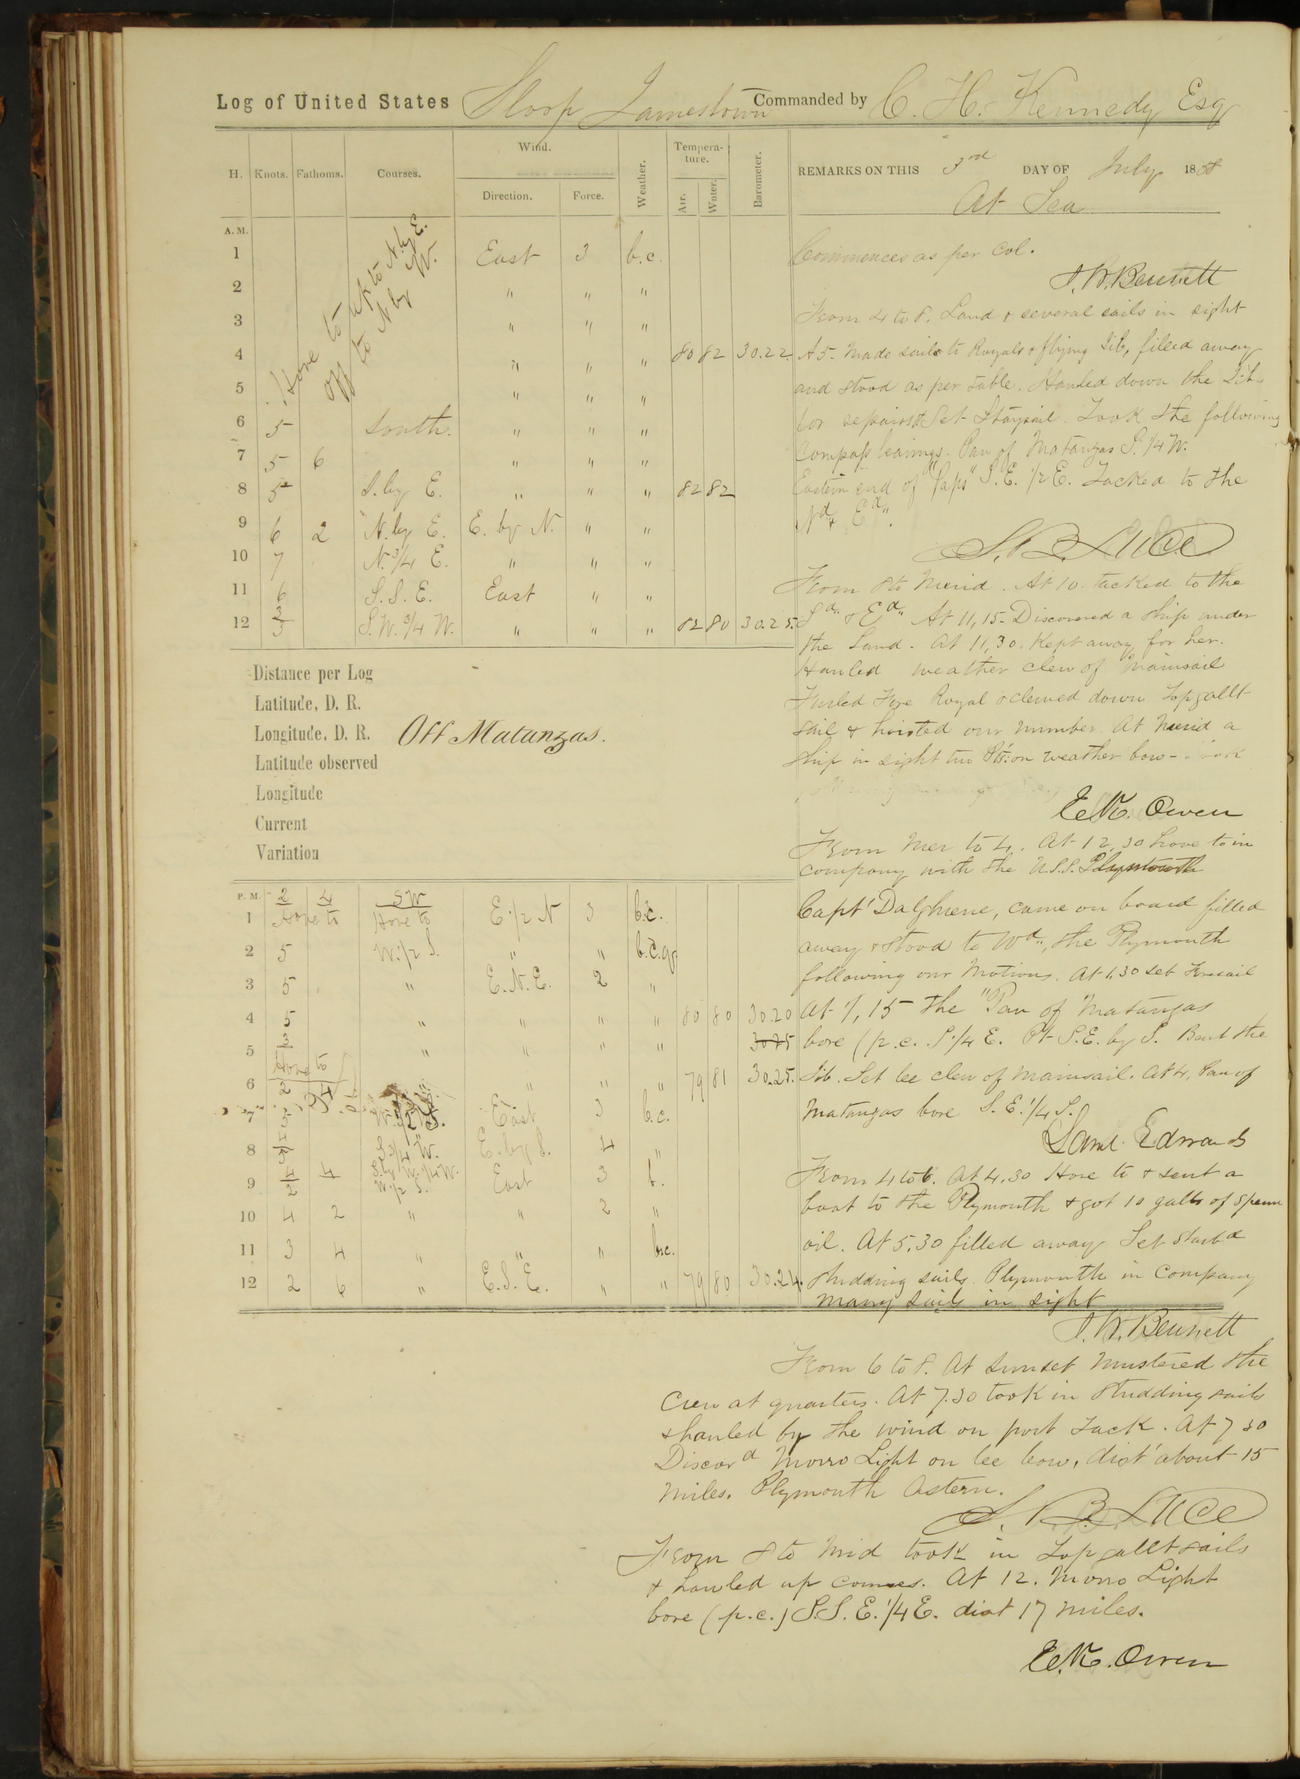 Log of United States Sloop Jamestown Commanded by C. H. Kennedy Esq
H. Knots. Fathoms. Courses. Wind. Direction. Force. Weather. Tempera-ture. Air. Water. Barometer.
REMARKS ON THIS 3rd DAY OF July 1858
At Sea
A. M.
Hove to up to N. by E.
off to N by W.
1 East 3 b.c.
2 " " "
3 " " "
4 " " " 80 82 30.22
5 " " "
6 5 South. " " "
7 5 6 " " "
8 5 S. by E. " " " 82 82
9 6 2 N. by E. E. by N. " "
10 7 N. 3/4 E. " " "
11 6 S. S. E. East " "
12 3/3 S. W. 3/4 W. " " " 82 80 30.25.
Distance per Log
Latitude, D. R.
Longitude, D. R. Off Matanzas.
Latitude observed
Longitude
Current
Variation
P. M. 2 4 SW
1 Hove to Hove to E. 1/2 N 3 b.c.
2 5 W. 1/2 S. " " b.c.q.
3 5 " E. N. E. 2 "
4 5 " " " " 80 80 30.20
5 3 " " " " 30.25
Hove to
6 2 4 " " " 79 81 30.25.
7 East 3 b.c.
8 S 3/4 W. E. by S. 4 "
9 4/2 4 W. 1/2 S. East 3 b.
10 4 2 " " 2 "
11 3 4 " " " b.c.
12 2 6 " E. S. E. " " 79 80 30.24.
Commences as per Col.
J. W. Bennett
From 4 to 8. Land & several sails in sight
At 5. Made sail to Royals & flying Jib, filled away
and stood as per table. Hauled down the Jib
for repairs & Set Staysail. Took the following
Compass bearings. Pan of Matanzas S. 1/4 W.
Eastern end of "Paps" S. E. 1/2 E. Tacked to the
Nd & Ed".
S. B. Luce
From 8 to Merid. At 10. tacked to the
Sd. & Ed". At 11,15. Discovered a ship under
the Land. At 11,30. Kept away for her.
Hauled weather clew of Mainsail
Furled Fore Royal & clewed down Topgallt
sail & hoisted our number. At Merid a
ship in sight two Pts. on weather bow
E. K. Owen
From Mer to 4. At 12,30 hove to in
company with the U.S.S. Plymouth
Capt' Dalghrene, came on board filled
away & stood to Wd", the Plymouth
following our Motions. At 1,30 set Foresail
At 1,15 the "Pan of Matanzas
bore (p.c. S. 1/4 E. Pt S.E. by S. Bent the
Jib. Set lee clew of Mainsail. At 4, Pan of
Matanzas bore S. E. 1/4 S.
Saml. Edwards
From 4 to 6. At 4.30 Hove to & sent a
boat to the Plymouth & got 10 galls of Sperm
oil. At 5.30 filled away Set starbd
studding sails. Plymouth in Company
Many sails in sight
J. W. Bennett
From 6 to 8. At Sunset Mustered the
Crew at quarters. At 7.30 took in studding sails
& hauled by the wind on port tack. At 7 30
Discovd Morro Light on lee bow, dist' about 15
miles. Plymouth Astern.
S. B. Luce
From 8 to Mid took in Topgallt sails
& hauled up courses. At 12. Morro Light
bore (p.c.) S.S.E. 1/4 E. dist 17 miles.
E. K. Owen